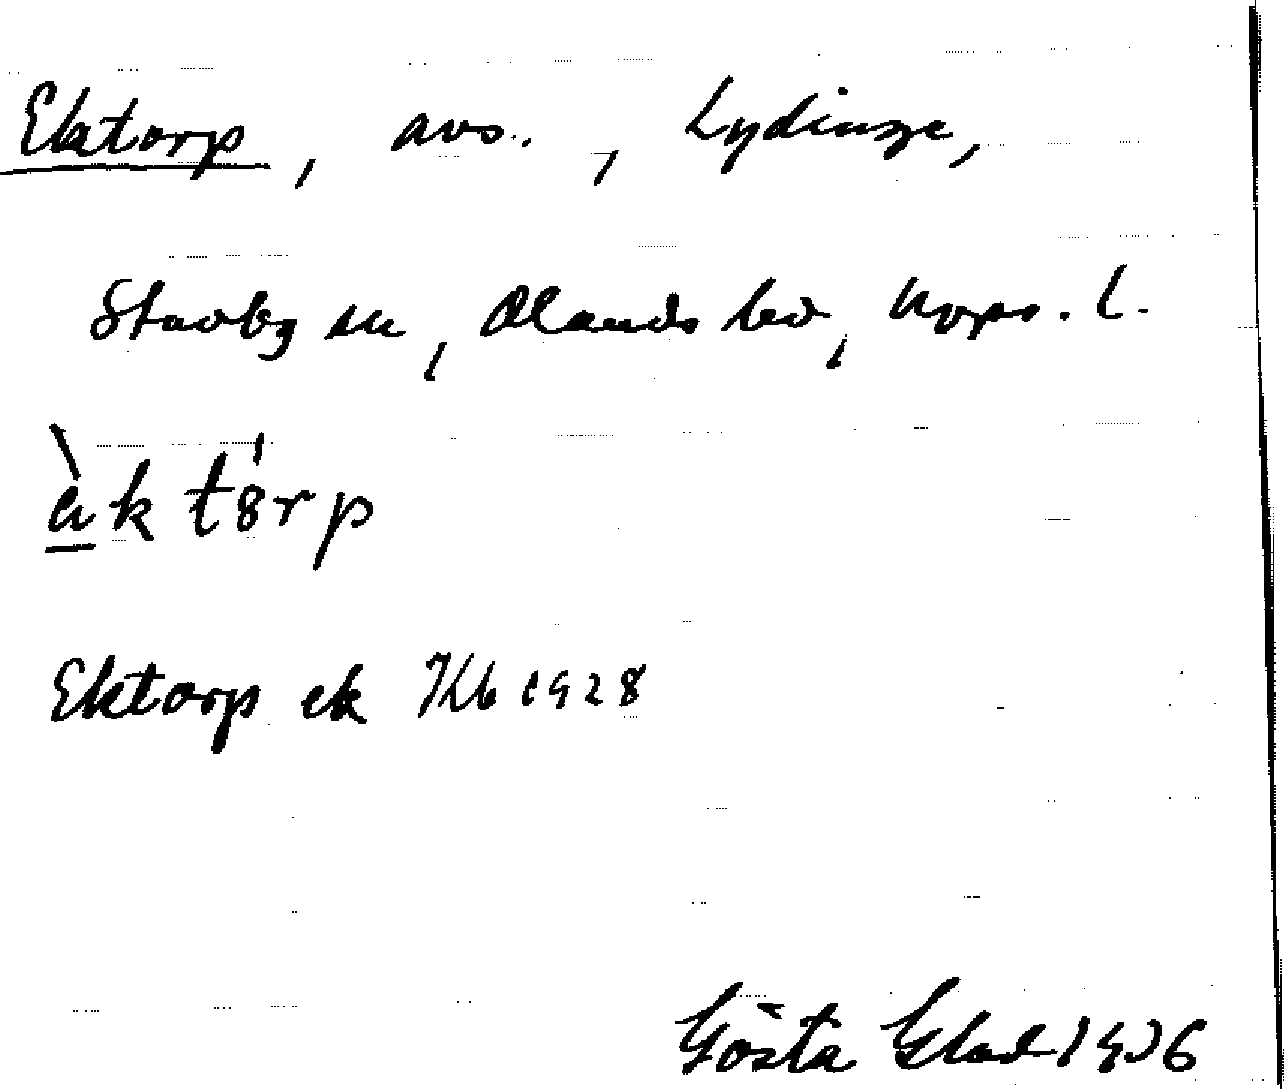 Ektorp, avs., Lydinge,
Stavby sn, Olands hd, Upps. l.
ktorp
Ektorp ek Kb 1928
Gösta Glad 1936